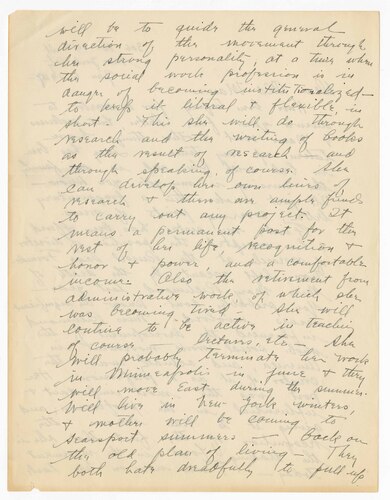 will be to guide the general
direction of the movement through
her strong personality, at a time when
the social work profession is in
danger of becoming institutionalized -
to keep it liberal & flexible, in
short. This she will do through
research and the writing of books
as the result of research and
through speaking, of course. She
can develop her own lines of
research & there are ample funds
to carry out any project. It
means a permanent post for the
rest of her life, recognition &
honor & power, and a comfortable
income. Also the retirement from
administrative work, of which she
was becoming tired - She will
continue to be active in teaching
of course - lectures, etc - She
will probably terminate her work
in Minneapolis in June & they
will move East during the summer.
Will live in New York winters,
& mother will be coming to
Searsport summers - back on
the old plan of living - They
both hate dreadfully to pull up